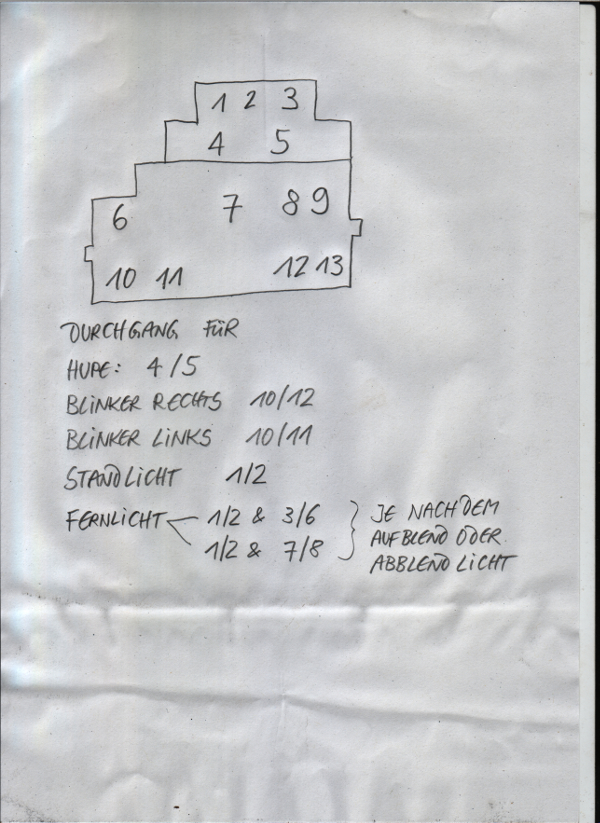 1 2 3
4 5
6 7 8 9
10 11 12 13
DURCHGANG FÜR
HUPE: 4/5
BLINKER RECHTS 10/12
BLINKER LINKS 10/11
STANDLICHT 1/2
FERNLICHT 1/2 & 3/6 JE NACHDEM
1/2 & 7/8 AUFBLEND ODER
ABBLENDLICHT